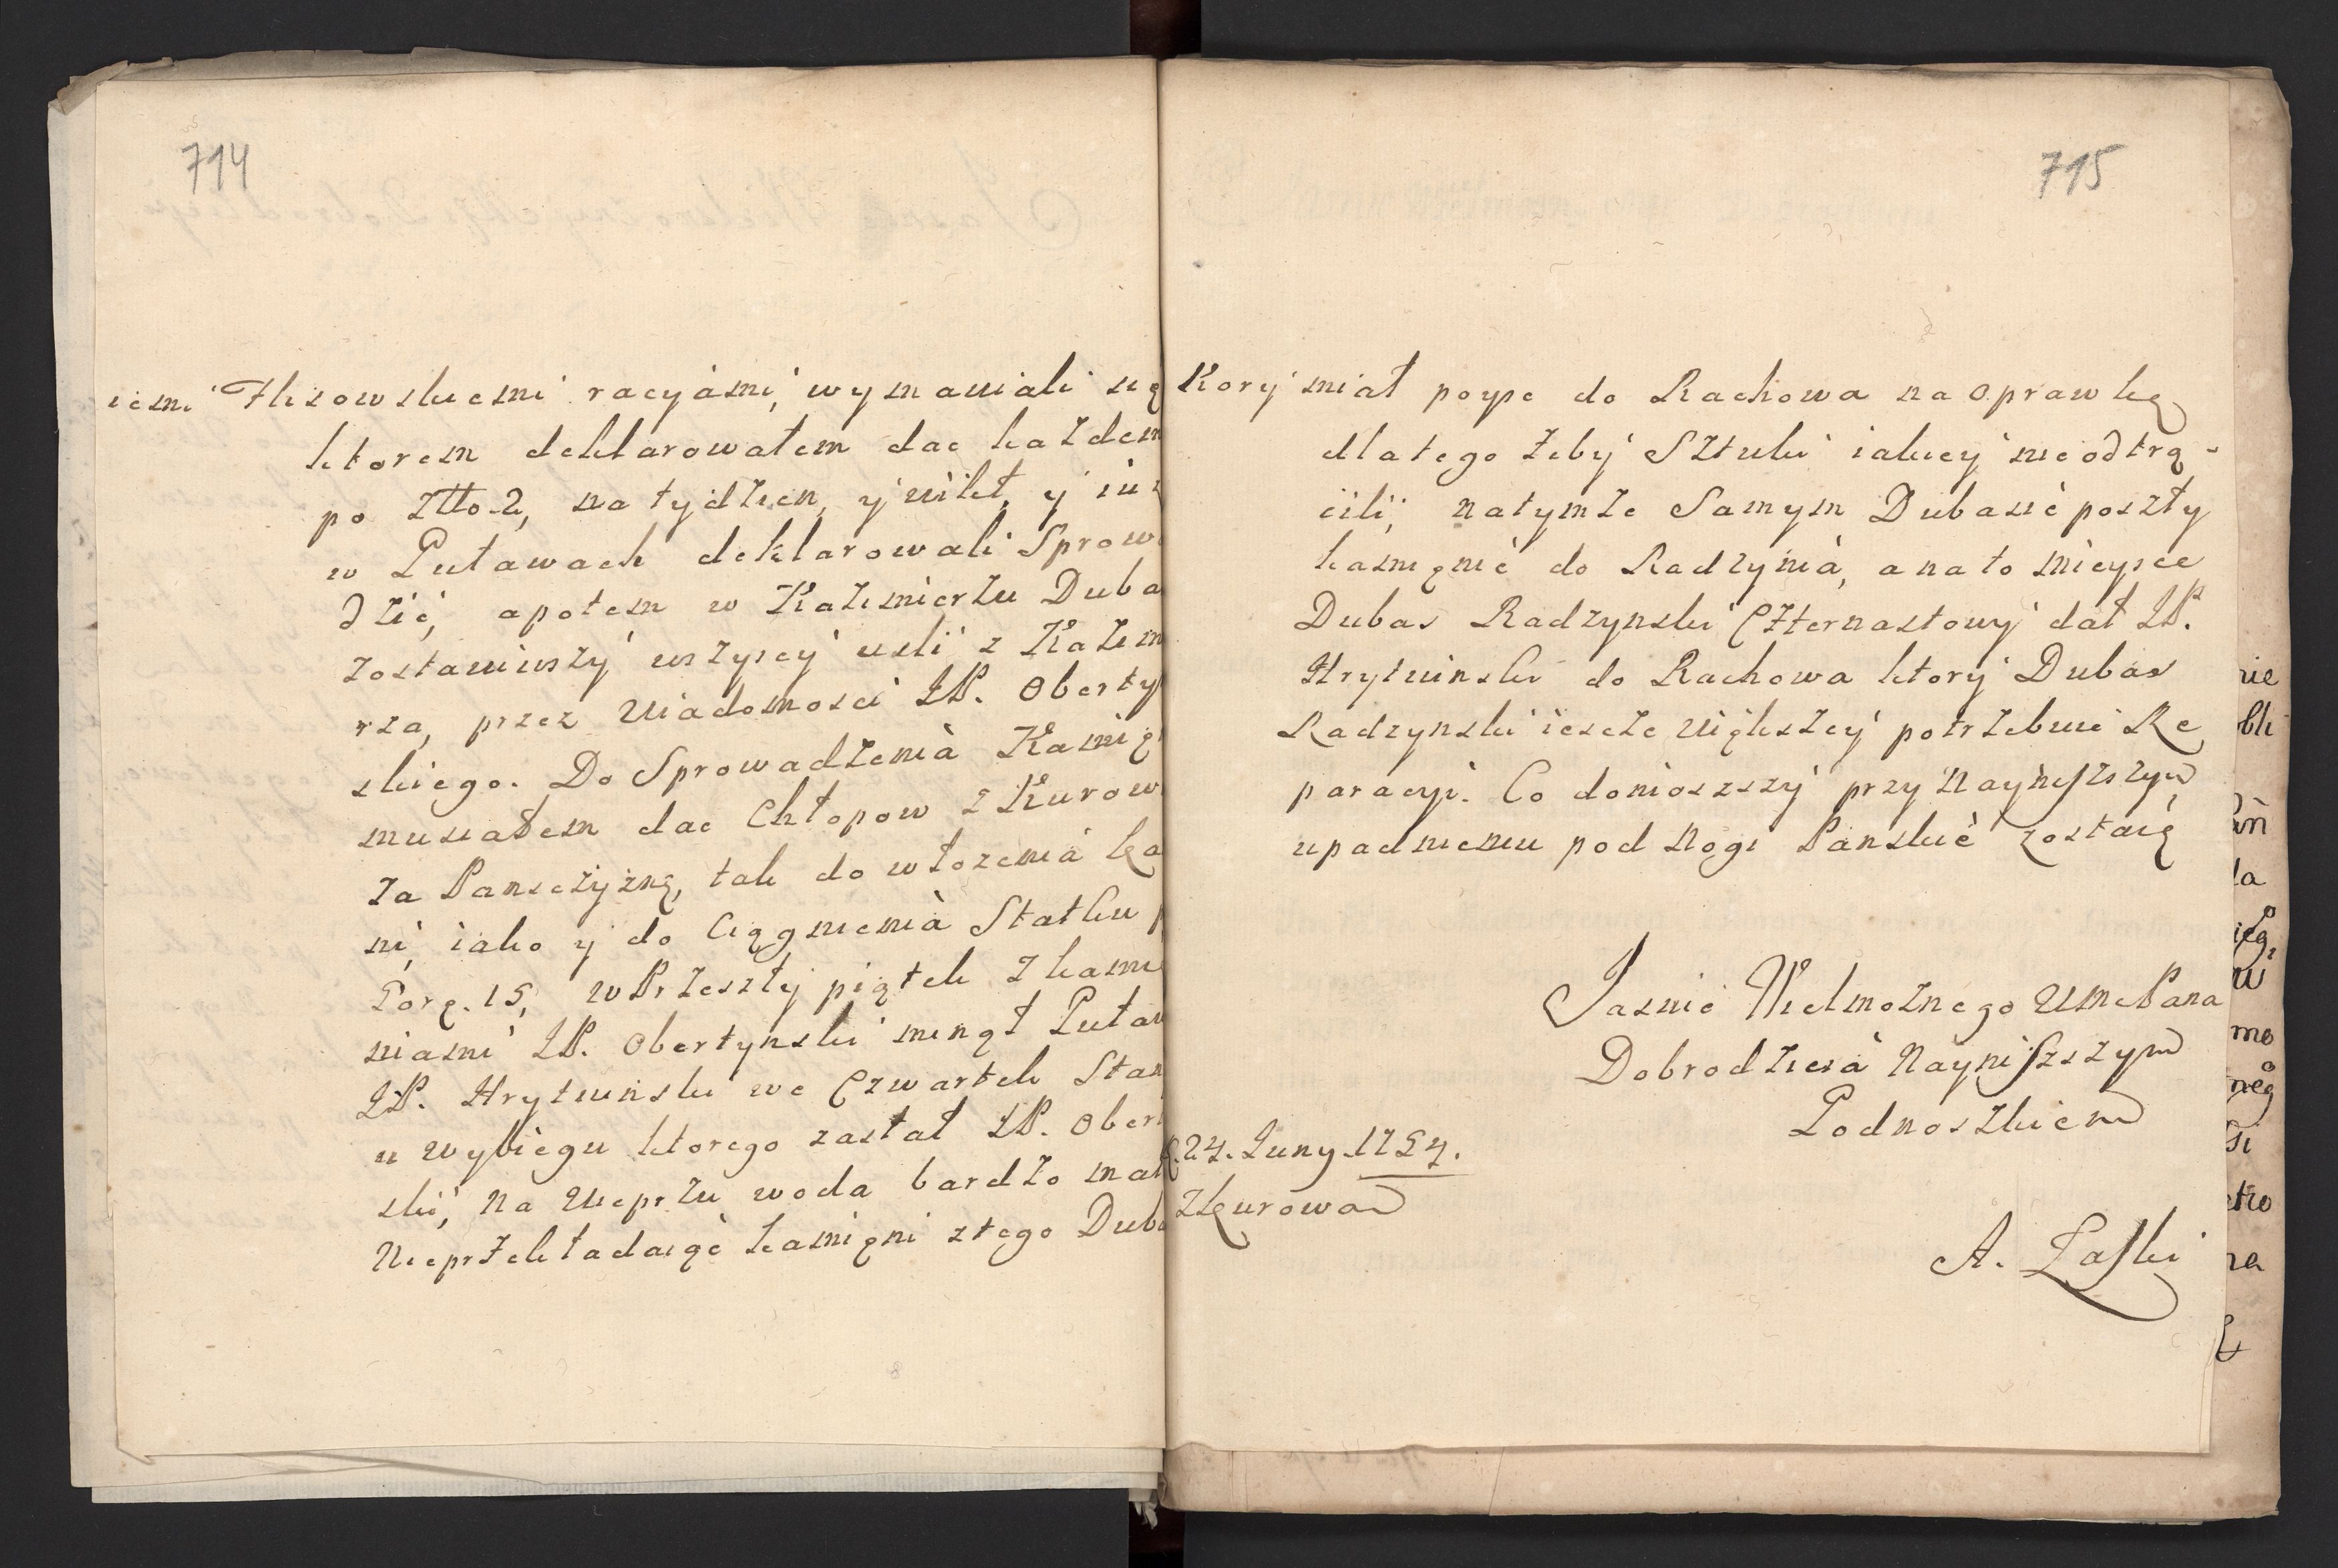 714
iemi Flisowskiemi racyiámi, wymawiali się
ktorem deklarowałem dac każdem
po złło 2, na tydzien, y wikt, y iuz
w Puławach deklarowali Sprow
dzić, apotem w Kaźmierzu Duba
zostawiwszy wszyscy uszli z Kazim
rza, przez Wiadomosci JP. Oberty
skiego. Do Sprowadzenià Kamię
musiałem dac Chłopow z Kurow
za Panszczyznę, tak do włozenià ka
ni, iako y do Ciągnienià Statku
Porę. 15, w Przeszły piątek z kamie
niami JP. Obertynski minął Puław
JP. Hrytwinski we Czwartek Stan
u wybiegu ktorego zastał JP. Ober
ski, na Wieprzu woda bardzo mał
Nieprzekładaiąc kamięni z tego Duba
715
Kory miał poyść do Rachowa na oprawkę
dlatego żeby Sztuki iakiey nie odtrą-
cili, natymże Samym Dubasie poszły
kamięnie do Radzynia, a na to mieysce
Dubas Radzynski Czternastowy dał JP.
Hrytwinski do Rachowa ktory Dubas
Radzynski iescze większey potrzebuie Re
paracyi. Co doniozszy przy Nayniższym
upadnieniu pod Nogi Panskie zostaię
Jasnie Wielmożnego Wmc Pana
Dobrodzieia Nayniższym
Podnoszkiem
24. Juny. 1754.
z Kurowa
A. Łaski